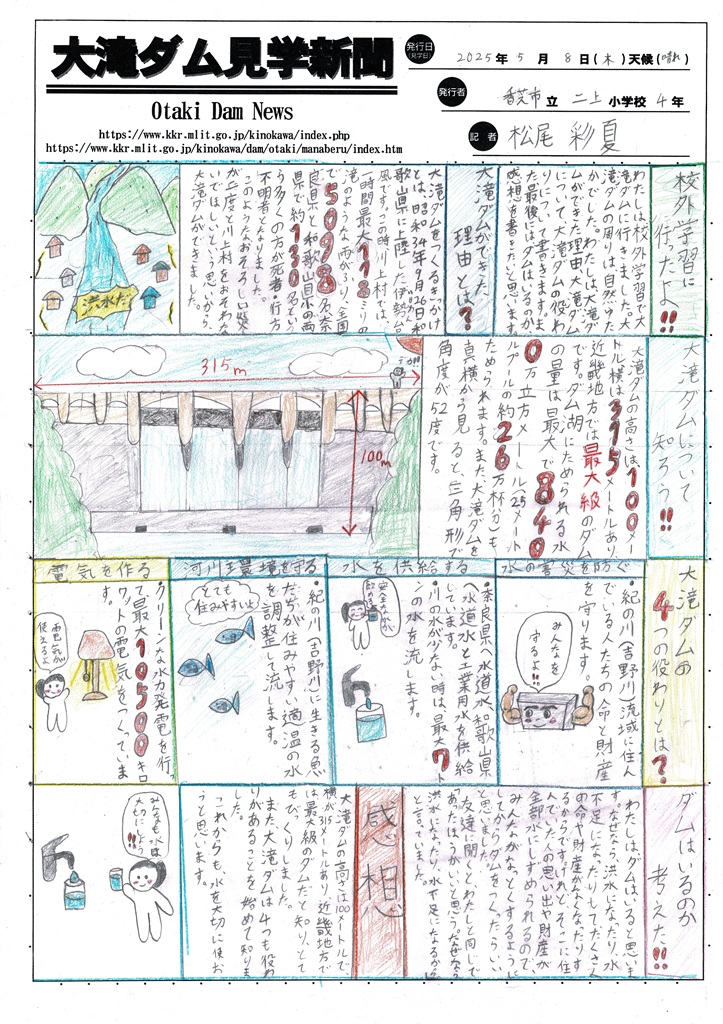 大滝ダム見学新聞
Otaki Dam News
https://www.kkr.mlit.go.jp/kinokawa/index.php
https://www.kkr.mlit.go.jp/kinokawa/dam/otaki/manaberu/index.htm
発行日
(見学日)
2025年 5月 8日(木)天候(晴れ)
発行者
香芝市立 二上小学校 4年
記者
松尾 彩夏
校外学習に
行ったよ!!
わたしは校外学習で大
滝ダムに行きました。大
滝ダムの周りは自然ゆた
かでした。わたしは、大滝ダ
ムができた理由、大滝ダム
について、大滝ダムの役わ
りについて書きます。ま
た最後にはダムはいるのか、
感想を書きたいと思います。
大滝ダムができた
理由とは?
大滝ダムをつくるきっかけ
とは、昭和34年9月26日和
歌山県に上陸した伊勢台
風です。この時川上村では、
一時間最大118ミリの
滝のような雨がふり、全国
で5098名、奈
良県と和歌山県の両
県で約130名とい
う多くの方が死者・行方
不明者となりました。
このようなおそろしい災害
が二度と川上村をおそわな
いでほしいという思いから、
大滝ダムができました。
洪水だ
大滝ダムについて
知ろう!!
大滝ダムの高さは、100メー
トル横は315メートルあり、
近畿地方では最大級のダム
です。ダム湖にためられる水
の量は最大で840
0万立方メートル(25メート
ルプールの約26万杯分)も
ためられます。また大滝ダムを
真横から見ると三角形で
角度が52度です。
315m
100m
大滝ダムの
4つの役わりとは?
水の害災を防ぐ
・紀の川(吉野川)流域に住ん
でいる人たちの命と財産
を守ります。
みんなを
守るよ!!
水を供給する
・奈良県へ水道水、和歌山県
へ水道水と工業用水を供給
しています。
・川の水が少ない時は、最大7ト
ンの水を流します。
安全な水が
飲める
河川環境を守る
・紀の川(吉野川)に生きる魚
たちが住みやすい適温の水
を調整して流します。
とても
住みやすいよ
電気を作る
・クリーンな水力発電を行っ
て最大10500キロ
ワットの電気をつくっていま
す。
電気が
使えるよ
ダムはいるのか
考えた!!
わたしはダムはいると思いま
す。なぜなら、洪水になったり、水
不足になったりしてたくさん
の命や財産がなくなったりす
るからです。けれど、そこに住
んでいた人の思い出や財産が
全部水にしずめられるので、
みんながなっとくするように
してからダムをつくったらいい
と思いました。
友達に聞くとわたしと同じで
あったほうがいいと思う。なぜなら
洪水になったり、水不足になるから
と言っていました。
感想
大滝ダムの高さは100メートルで、
横が315メートルあり近畿地方で
は最大級のダムだと知り、とて
もびっくりしました。
また大滝ダムは4つも役わ
りがあることを始めて知りま
した。
これからも、水を大切に使お
うと思います。
みんなも水は
大切にしよう
!!